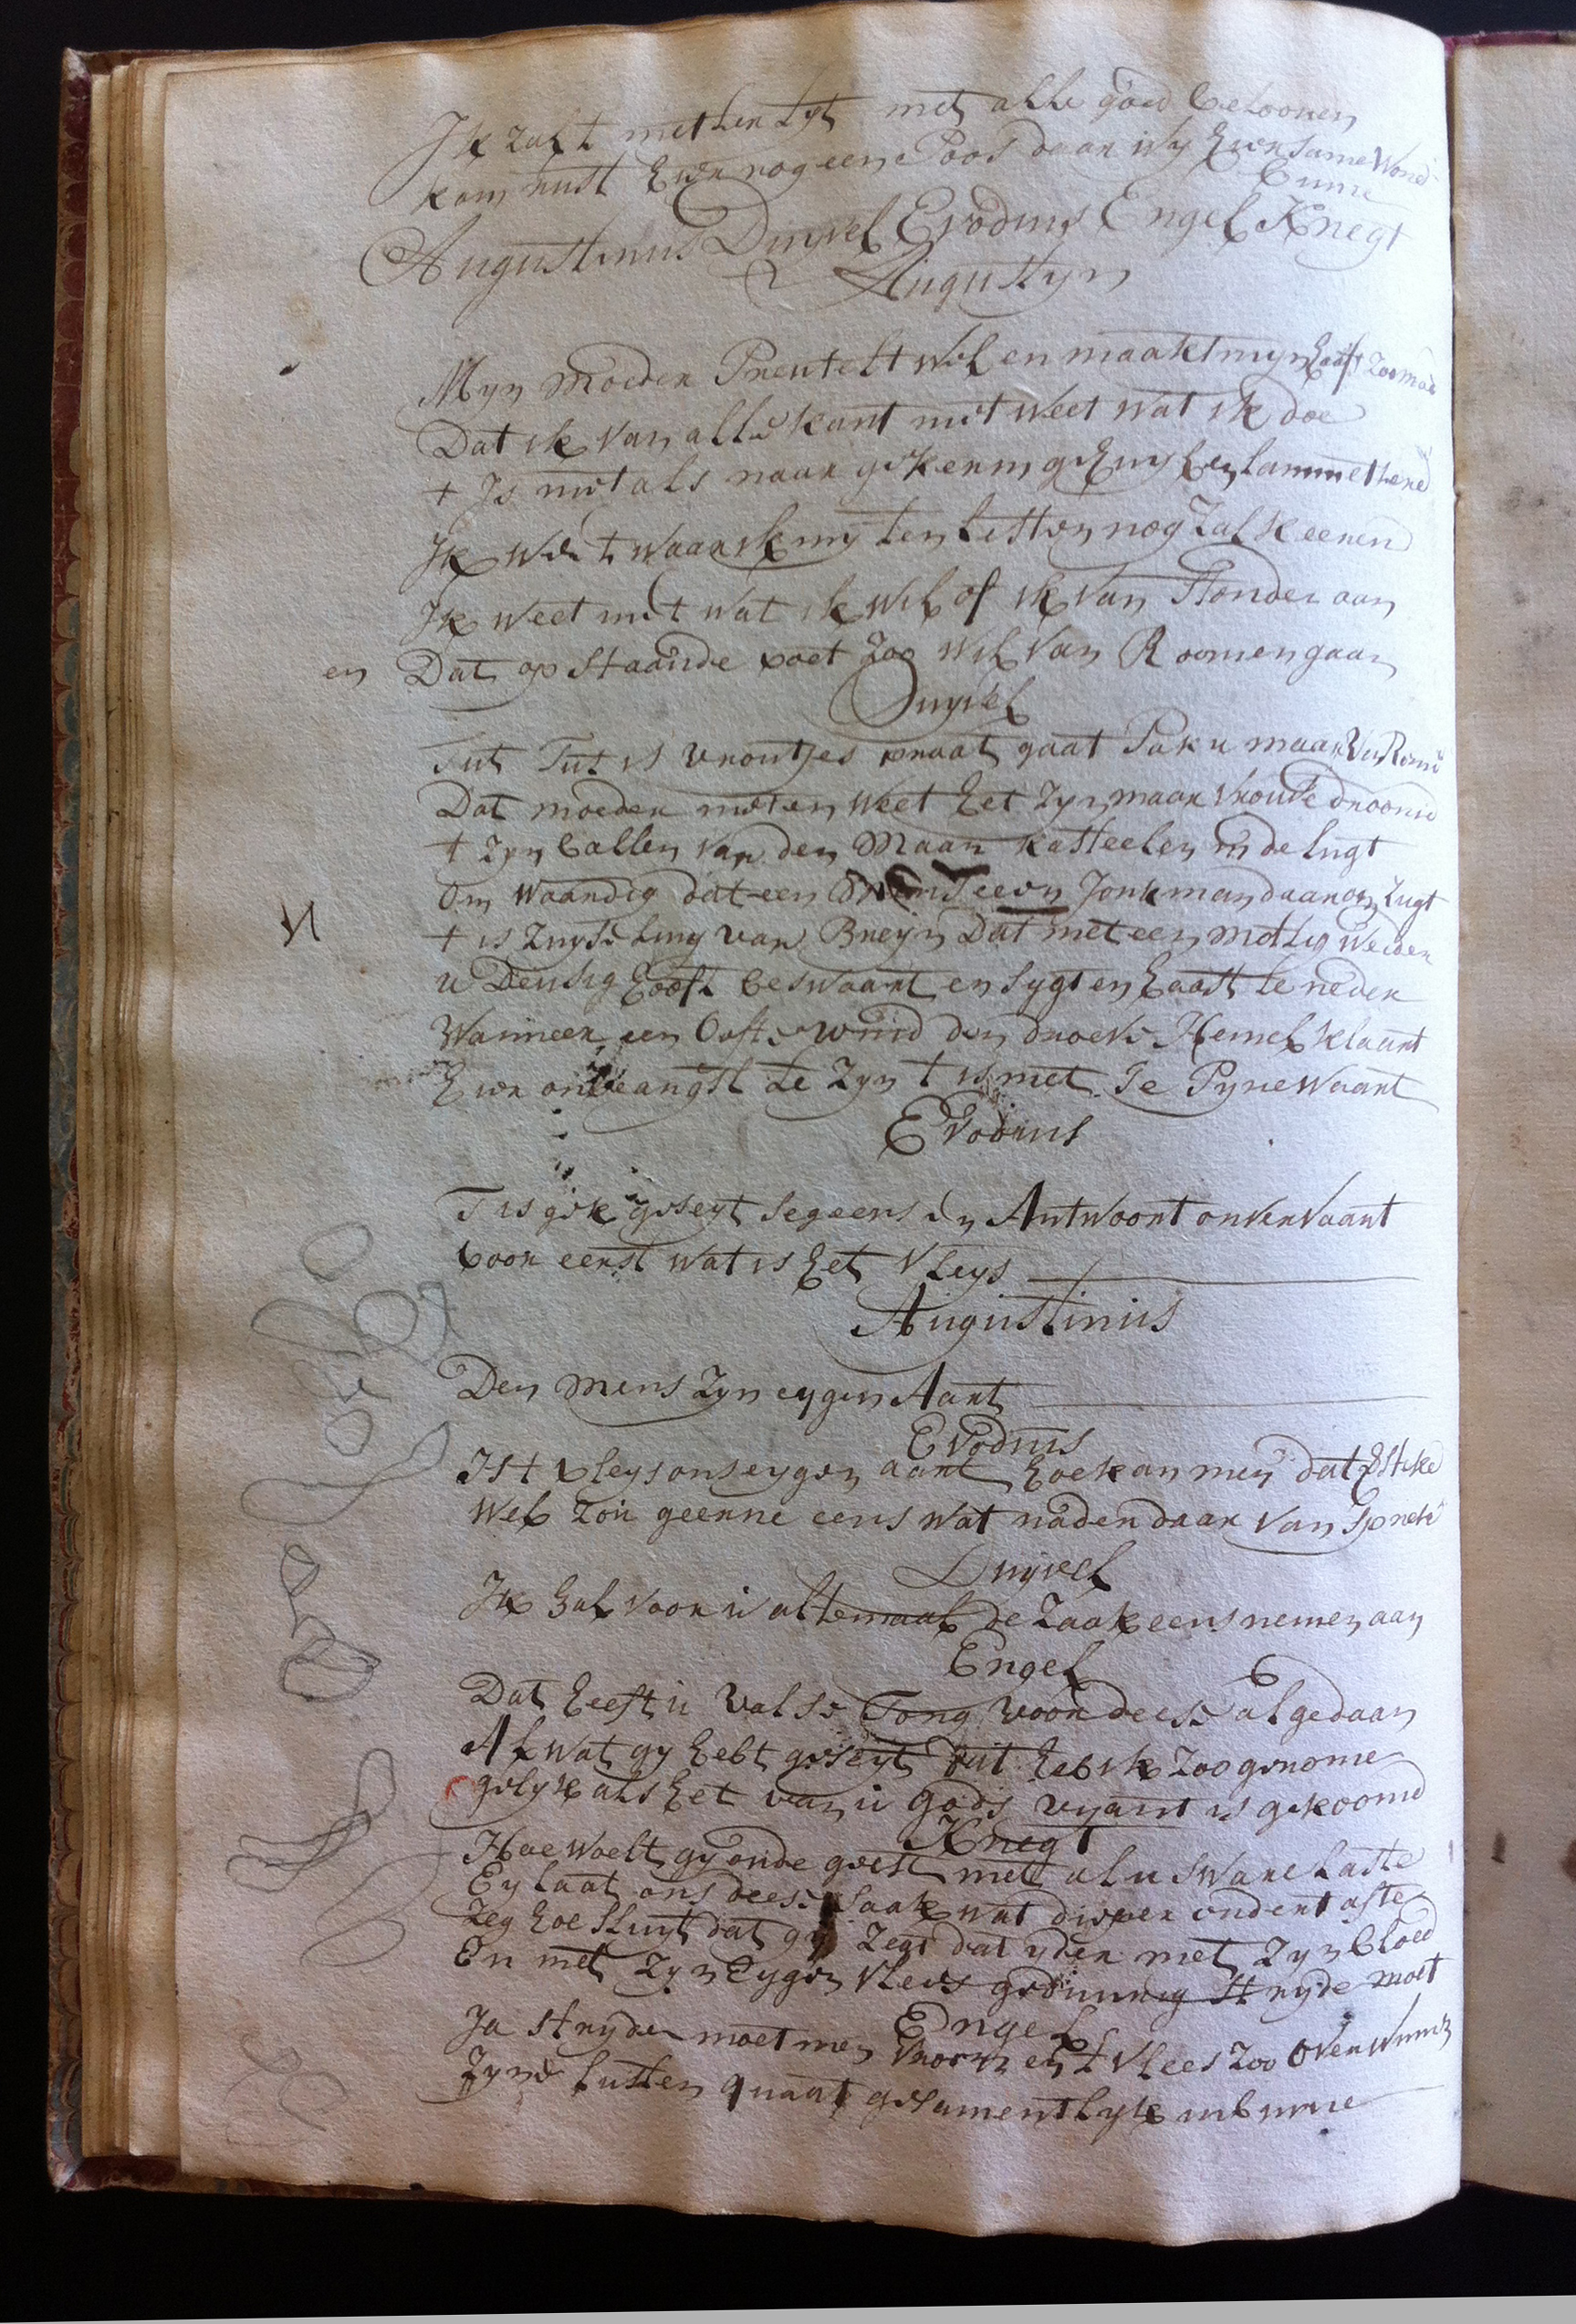 Ik zal t metter tyt met alle goed beloonen
kom rust hier nog een Poos daar wy hier same Wond
binne
Augustinus Duyvel Evodius Engel Knegt
Augustyn
Myn Moeder Preutelt wel en maakt myn hooft zoo moe
Dat ik van alle kant niet weet wat ik doe
t Is niet als naar gekerm gehuyl en lammetere
Ik weet waar ik my ten letsten nog zal keeren
Ik weet niet wat ik wil of ik van stonden aan
en Dat op staande voet zoo wil van Roomen gaan
Duyvel
Tut Tut is vrontjes praat gaat Pak u maar van Rome
Dat moeder niet en weet het zyn maar vroude droome
t zyn ballen van den Maan kasteelen in de lugt
Onwaardig dat een Jonkman daarom zugt
t is zuyseling van Breyn Dat met een mottig weeder
u Deusig hooft beswaart en sygt en haast te neder
Wanneer een Ooste wind den droeve Hemel klaart
hier ontbeangst te zyn t is niet de Pyne waart
Evodius
T is gek geseyt seg eens den Antwoort onvervaart
voor eerst wat is het vleys
Augustinus
Den mens zyn eygen Aart
Evodius
Ist vleys ons eygen aart hoe kan men dat
Wel zou geerne eens wat nader daar van spreke
Duyvel
Ik sal voor u altemaal de zaak eens nemen aan
Engel
Dat heeft u valse Tong voor deese al gedaan
Al wat gy hebt geseyt dit heb ik zoo genome
gelyk als het van u gods vyant is gekoome
Knegt
Hoe woelt gy onde geest met al u sware laste
Ey laat ons deese saak wat dieper onder taste
Zeg hoe sluyt dat gy zegt dat yder met zyn bloed
En met zyn Eygen vlees geduurig stryde moet
Engel
Ja stryde moet men vroom en t vlees zoo overwinne
zyne lusten quaat gesamentlyk inbinne